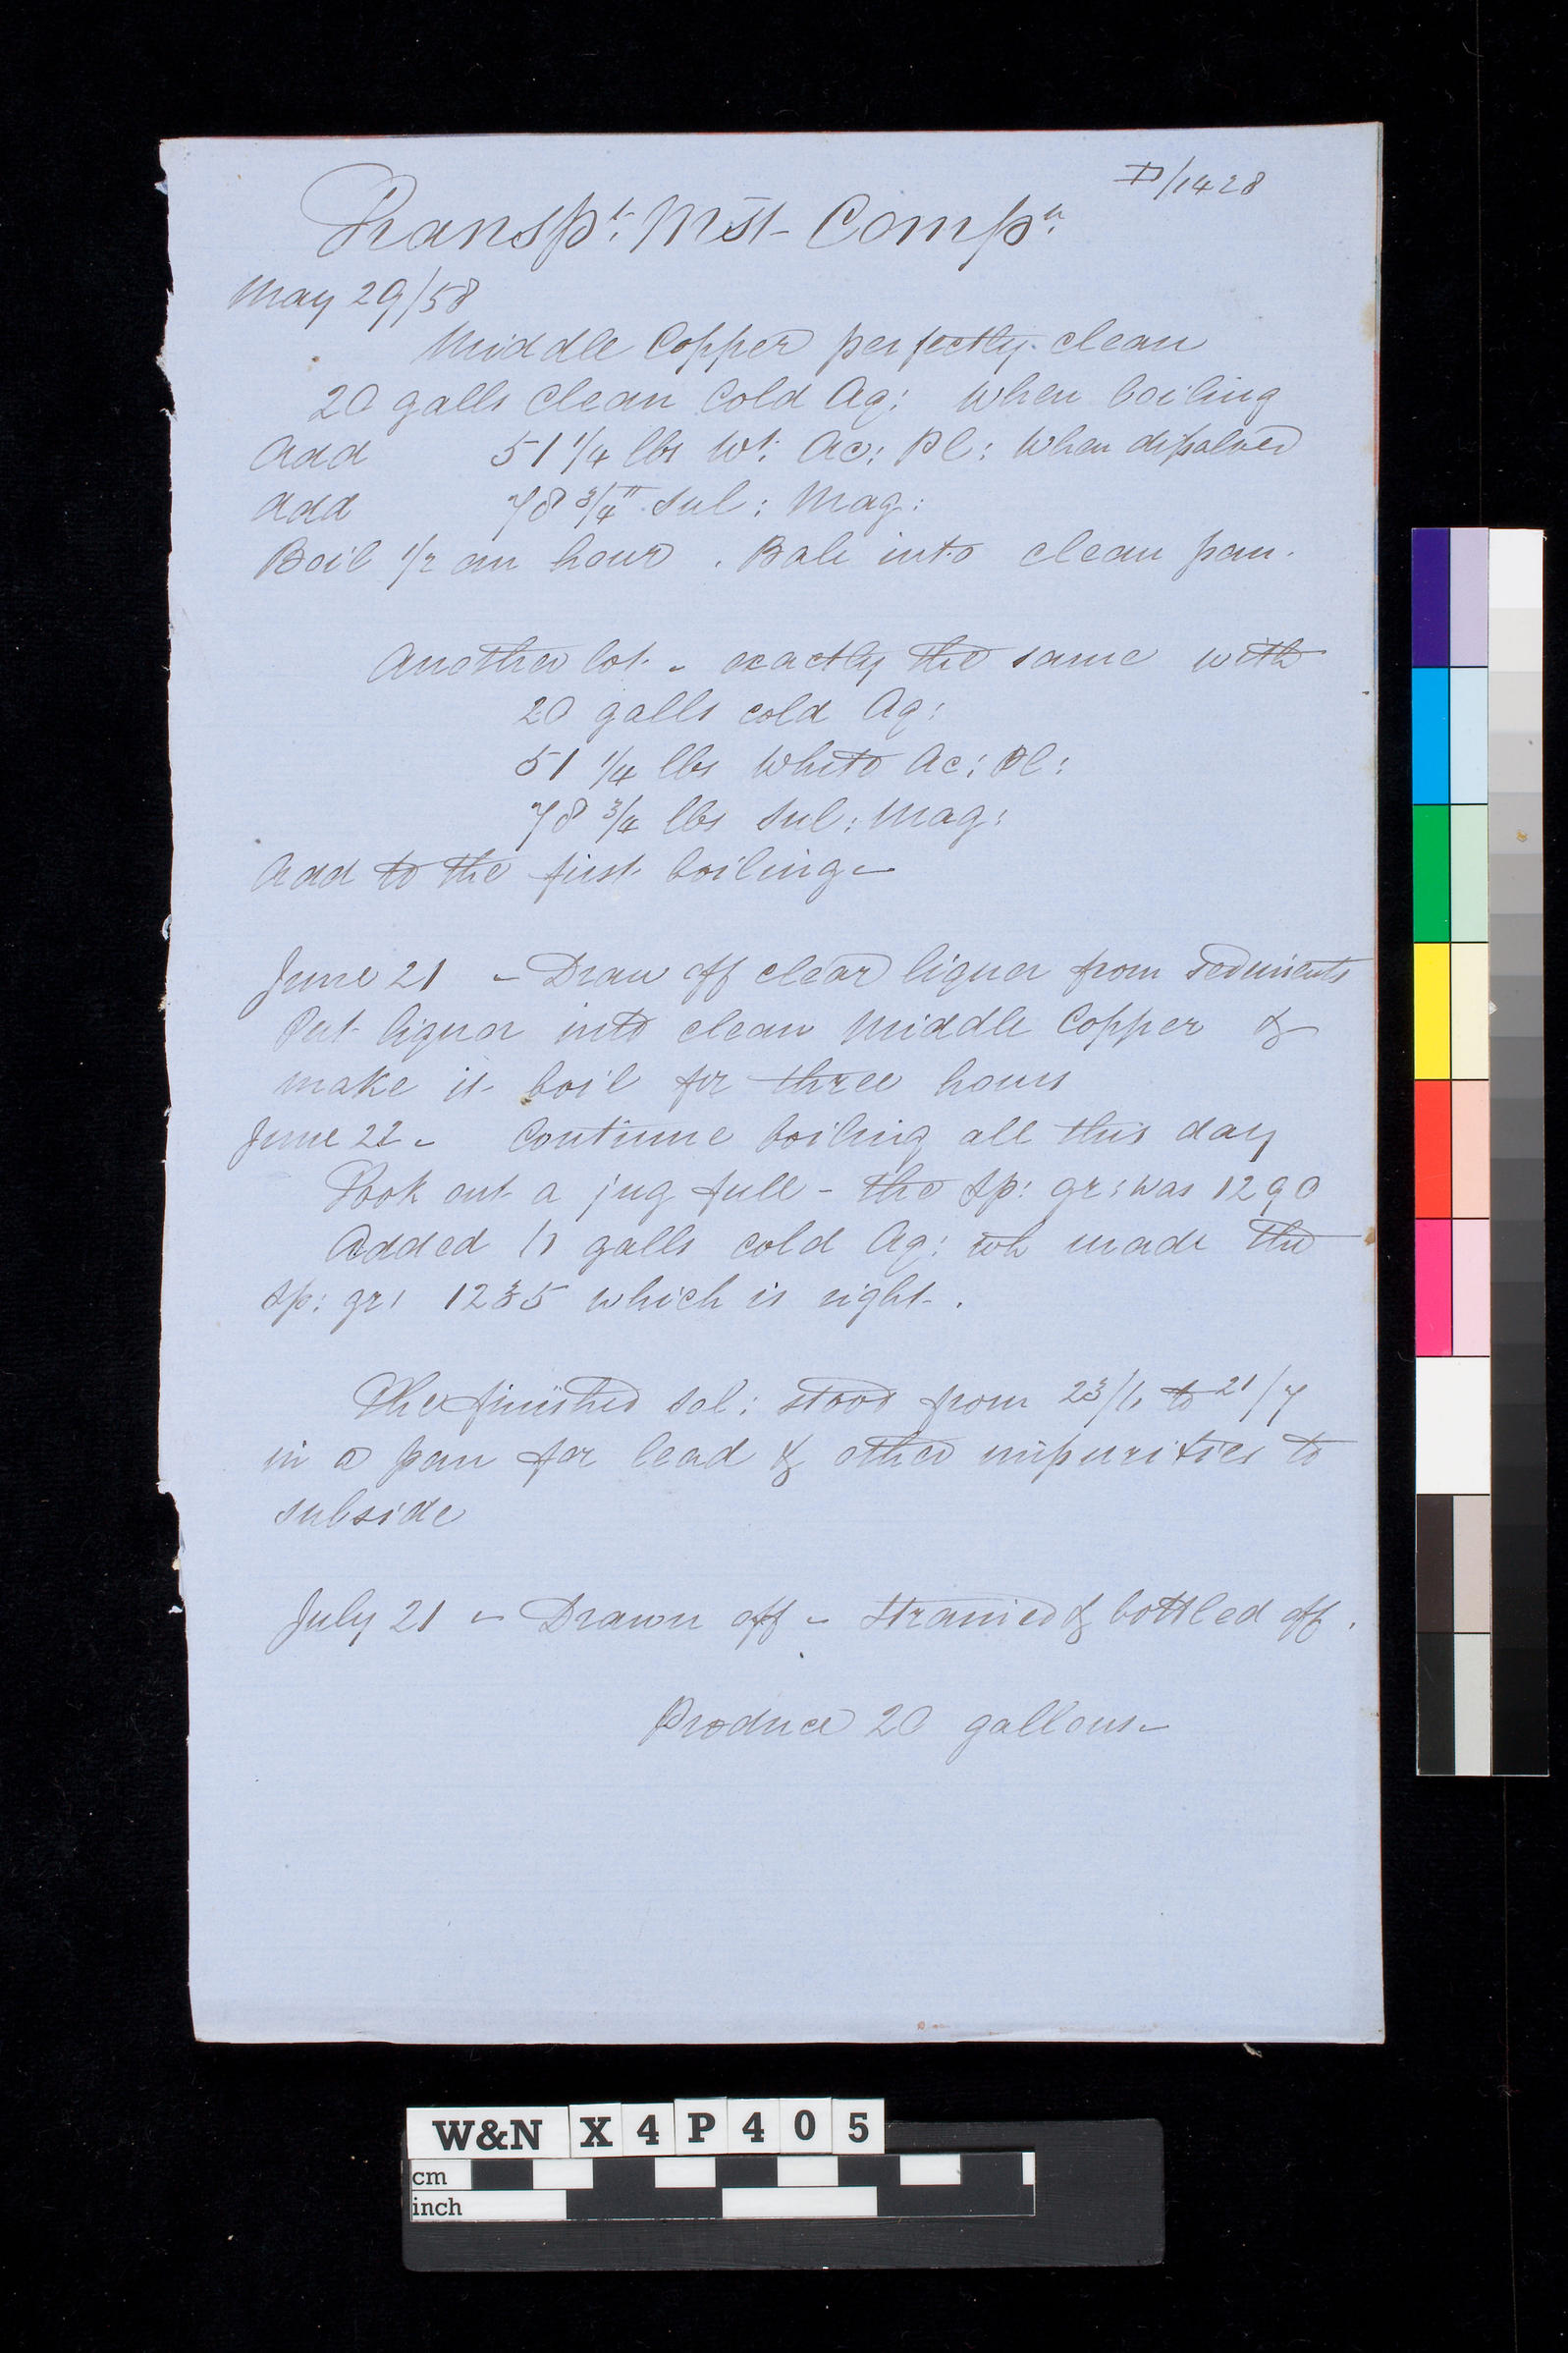 D/1428
Transpt. Mst - Compn.
May 29/58
Middle Copper perfectly clean
20 galls clean Cold Aq: When boiling
Add 51 1/4 lbs Wt. Ac: Pl: When dissolved
Add 78 3/4 " Sul: Mag:
Boil 1/2 an hour. Bale into clean pan.
Another lot - exactly the same with
20 galls cold Aq:
51 1/4 lbs White Ac: Pl:
78 3/4 lbs Sul: Mag:
Add to the first boiling -
June 21 - Draw off clear liquor from sediments
Put liquor into clean Middle Copper &
make it boil for three hours
June 22 - Continue boiling all this day
Took out a jug full - the sp: gr: was 1290
Added galls cold Aq: wh made the
sp: gr: 1235 which is right.
The finished sol: stood from 23/6 to 21/7
in a pan for lead & other impurities to
subside
July 21 - Drawn off - strained & bottled off.
Produce 20 gallons -
W&N X4P405
cm
inch